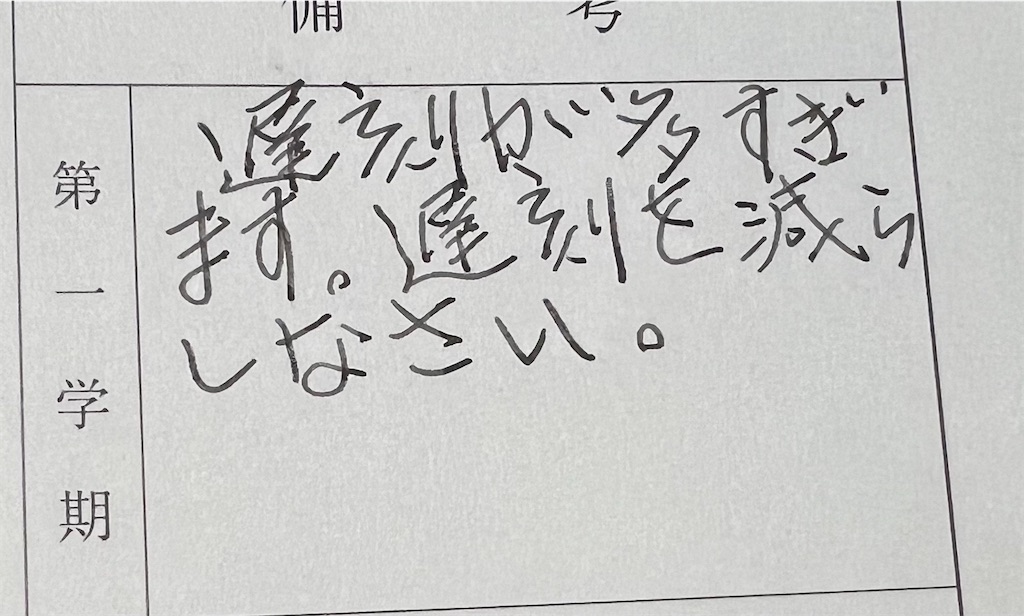 備考
第一学期
遅刻が多すぎ
ます。遅刻を減ら
しなさい。